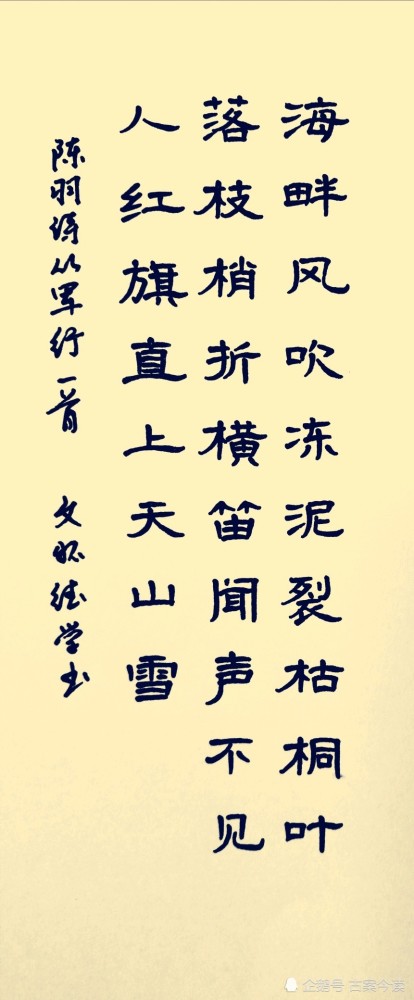 海畔风吹冻泥裂枯桐叶
落枝梢折横笛闻声不见
人红旗直上天山雪
陈羽诗从军行一首 文怀德学书
企鹅号 古案今谈